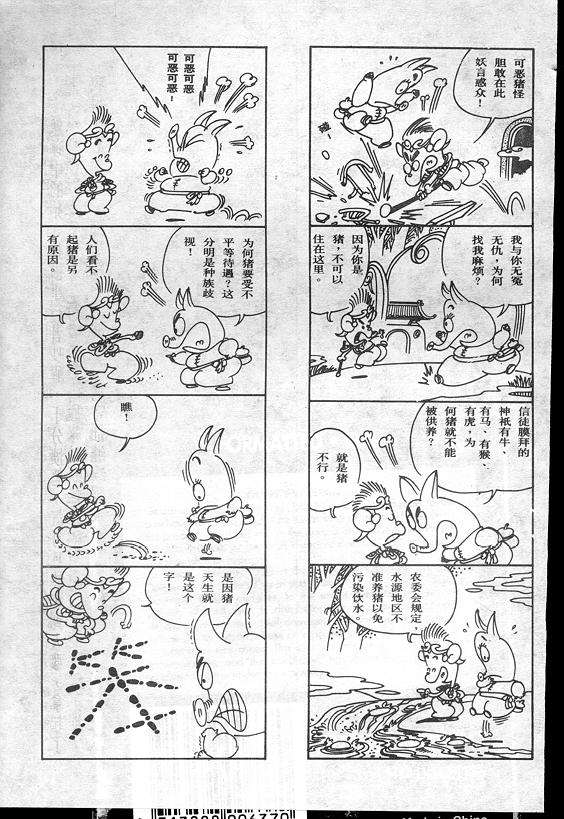 可恶猪怪
胆敢在此
妖言惑众！
碰！
我与你无冤
无仇，为何
找我麻烦？
因为你是
猪，不可以
住在这里。
信徒膜拜的
神祇有牛、
有马、有猴、
有虎，为
何猪就不能
被供养？
就是猪
不行。
农委会规定，
水源地区不
准养猪以免
污染饮水。
可恶可恶
可恶可恶！
为何猪要受不
平等待遇？这
分明是种族歧
视！
人们看不
起猪是另
有原因。
瞧！
是因猪
天生就
是这个
字！